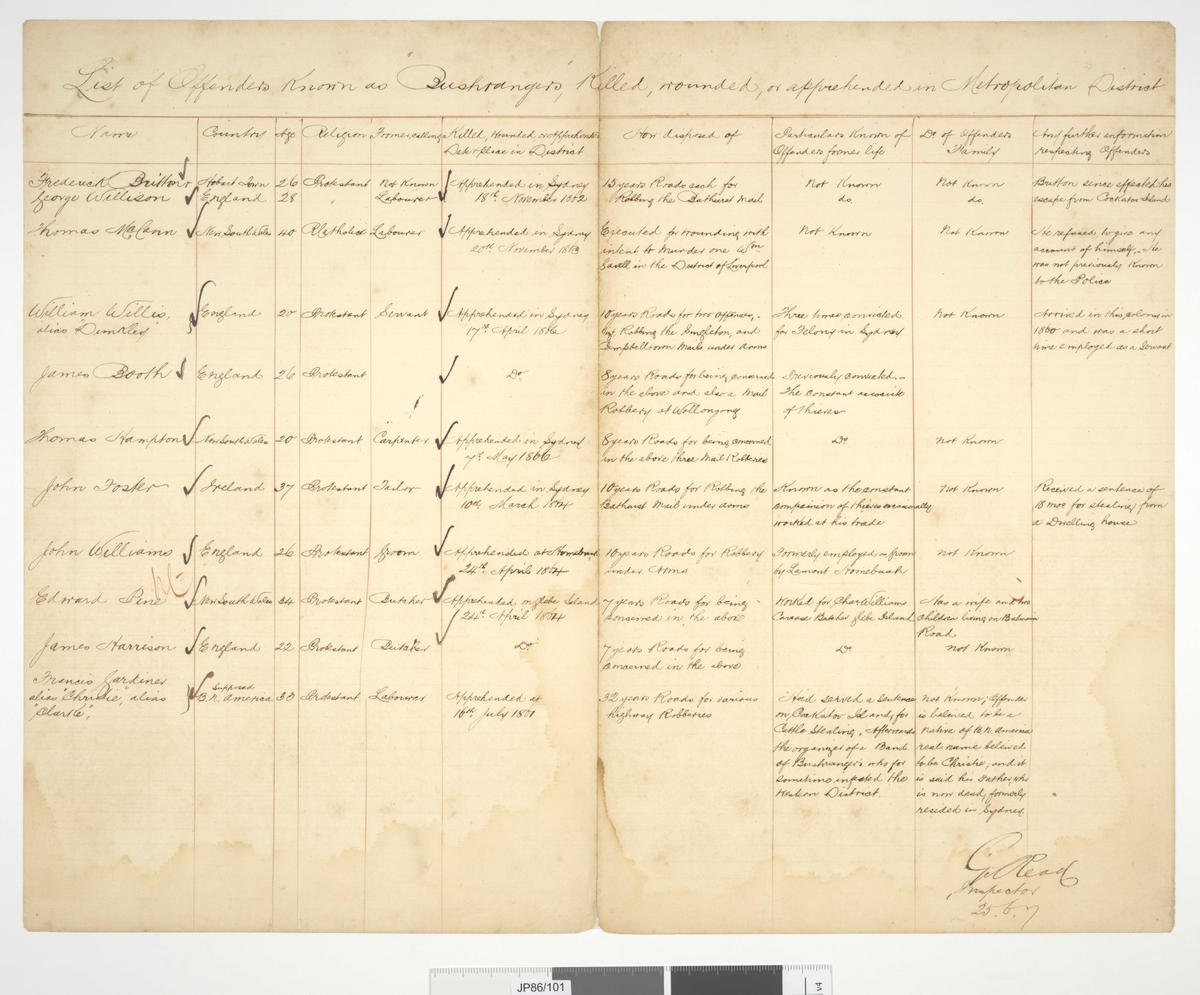 List of Offenders Known as "Bushrangers", Killed, wounded, or apprehended in Metropolitan District
Name
Country
Age
Religion
Former calling
Killed, Wounded, or Apprehended
Date & place in District
How disposed of
Particulars Known of
Offenders former life
Do. of Offenders
Family
Any further information
respecting Offenders
Frederick Britton
Hobart Town
26
Protestant
Not Known
Apprehended in Sydney
15 years Roads each for
Not Known
Not Known
Britton since effected his
George Willison
England
28
"
Labourer
18th November 1862
Robbing the Bathurst Mail
do.
do.
escape from Cockatoo Island
Thomas McCann
New South Wales
40
R Catholic
Labourer
Apprehended in Sydney
20th November 1863
Executed for wounding with
intent to Murder one Wm
in the District of Liverpool
Not Known
Not Known
He refused to give any
account of himself. He
was not previously Known
to the Police
William Willis,
alias "Dunkley"
England
20
Protestant
Servant
Apprehended in Sydney
17th April 1866
10 years Roads for two offences,
Robbing the Singleton, and
Campbelltown Mails under arms
Three times convicted
for Felony in Sydney
Not Known
Arrived in this colony in
1860 and was a short
time employed as a Servant
James Booth
England
26
Protestant
Do.
8 years Roads for being concerned
in the above and also a Mail
Robbery at Wollongong
Previously convicted.
The constant associate
of thieves
Thomas Hampton
New South Wales
20
Protestant
Carpenter
Apprehended in Sydney
7th May 1866
8 years Roads for being concerned
in the above three Mail Robberies
Do.
Not Known
John Foster
Ireland
37
Protestant
Tailor
Apprehended in Sydney
10th March 1864
10 years Roads for Robbing the
Bathurst Mail under arms
Known as the constant
companion of thieves occasionally
worked at his trade
Not Known
Received a sentence of
18 mos for stealing from
a Dwelling house
John Williams
England
26
Protestant
Groom
Apprehended at Homebush
24th April 1864
10 years Roads for Robbery
under Arms
Formerly employed as groom
by Lamont Homebush
Not Known
Edward Pine
New South Wales
34
Protestant
Butcher
Apprehended on Glebe Island
24th April 1864
7 years Roads for being
concerned in the above
Worked for Chas Williams
Carcase Butcher Glebe Island
Has a wife and two
children living on Balmain
Road
James Harrison
England
22
Protestant
Butcher
Do.
7 years Roads for being
concerned in the above
Do.
Not Known
Francis Gardiner
alias "Christie", alias
"Clarke",
Supposed
B. N. America
38
Protestant
Labourer
Apprehended at
16th July 1861
32 years Roads for various
highway Robberies
Had served a Sentence
on Cockatoo Island, for
Cattle Stealing. Afterwards
the organizer of a Band
of Bushrangers who for
sometime infested the
Western District.
Not Known; Offender
is believed to be a
native of B. N. America
real name believed
to be Christie, and it
is said his Father, who
is now dead, formerly
resided in Sydney.
G Read
Inspector
25.6.7
JP86/101